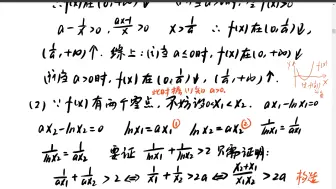 a - 1/x > 0, (ax-1)/x > 0   x > 1/a   ∴ f(x)在(0, 1/a)↓
(1/a, +∞)↑. 综上: (i)当 a≤0时, f(x)在(0, +∞)↓
(ii)当 a>0时, f(x)在(0, 1/a)↓, (1/a, +∞)↑.
(2) ∵ f(x)有两个零点, 不妨设0<x₁<x₂. ax₁-lnx₁=0
ax₂-lnx₂=0   lnx₁=ax₁ ①   lnx₂=ax₂ ②   1/lnx₁ = 1/ax₁
1/lnx₂ = 1/ax₂   要证 1/lnx₁ + 1/lnx₂ > 2 只需证明:
1/ax₁ + 1/ax₂ > 2 ⇔ 1/x₁ + 1/x₂ > 2a ⇔ (x₂+x₁)/(x₁x₂) > 2a 构造